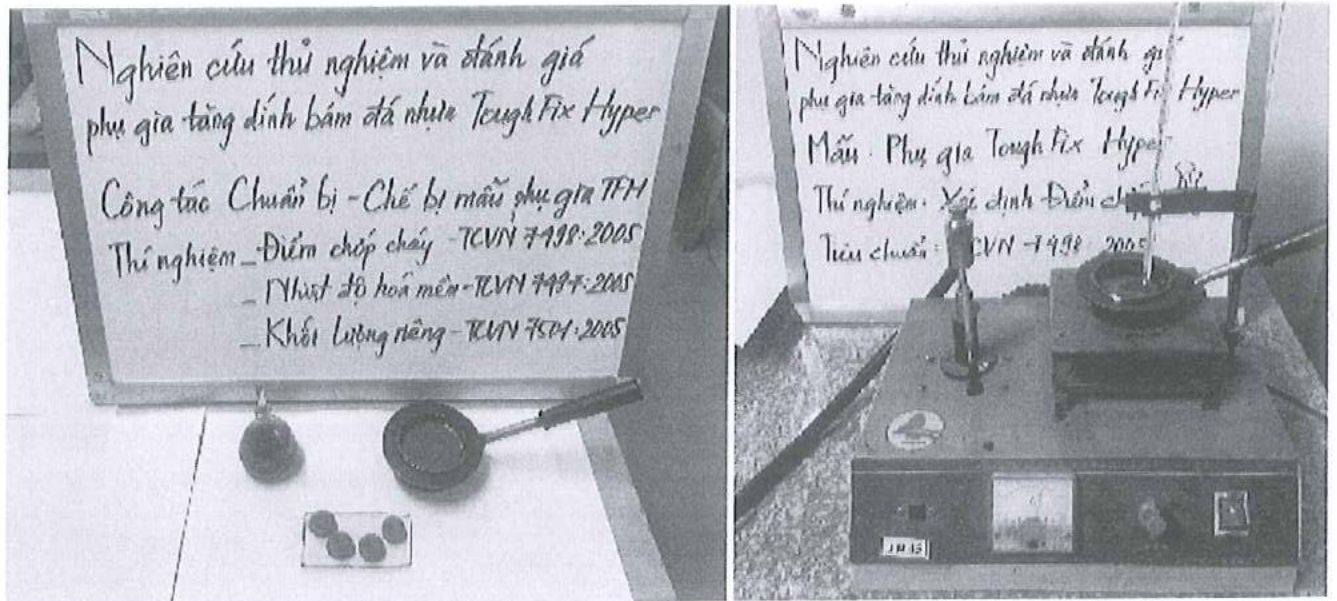 Nghiên cứu thử nghiệm và đánh giá
phụ gia tăng dính bám đá nhựa Tough Fix Hyper
Công tác Chuẩn bị - Chế bị mẫu phụ gia TFH
Thí nghiệm - Điểm chớp cháy - TCVN 7498:2005
- Nhiệt độ hoá mềm - TCVN 7497:2005
- Khối lượng riêng - TCVN 7501:2005
Nghiên cứu thử nghiệm và đánh giá
phụ gia tăng dính bám đá nhựa Tough Fix Hyper
Mẫu: Phụ gia Tough Fix Hyper
Thí nghiệm: Xác định Điểm
Tiêu chuẩn: TCVN 7498 2005